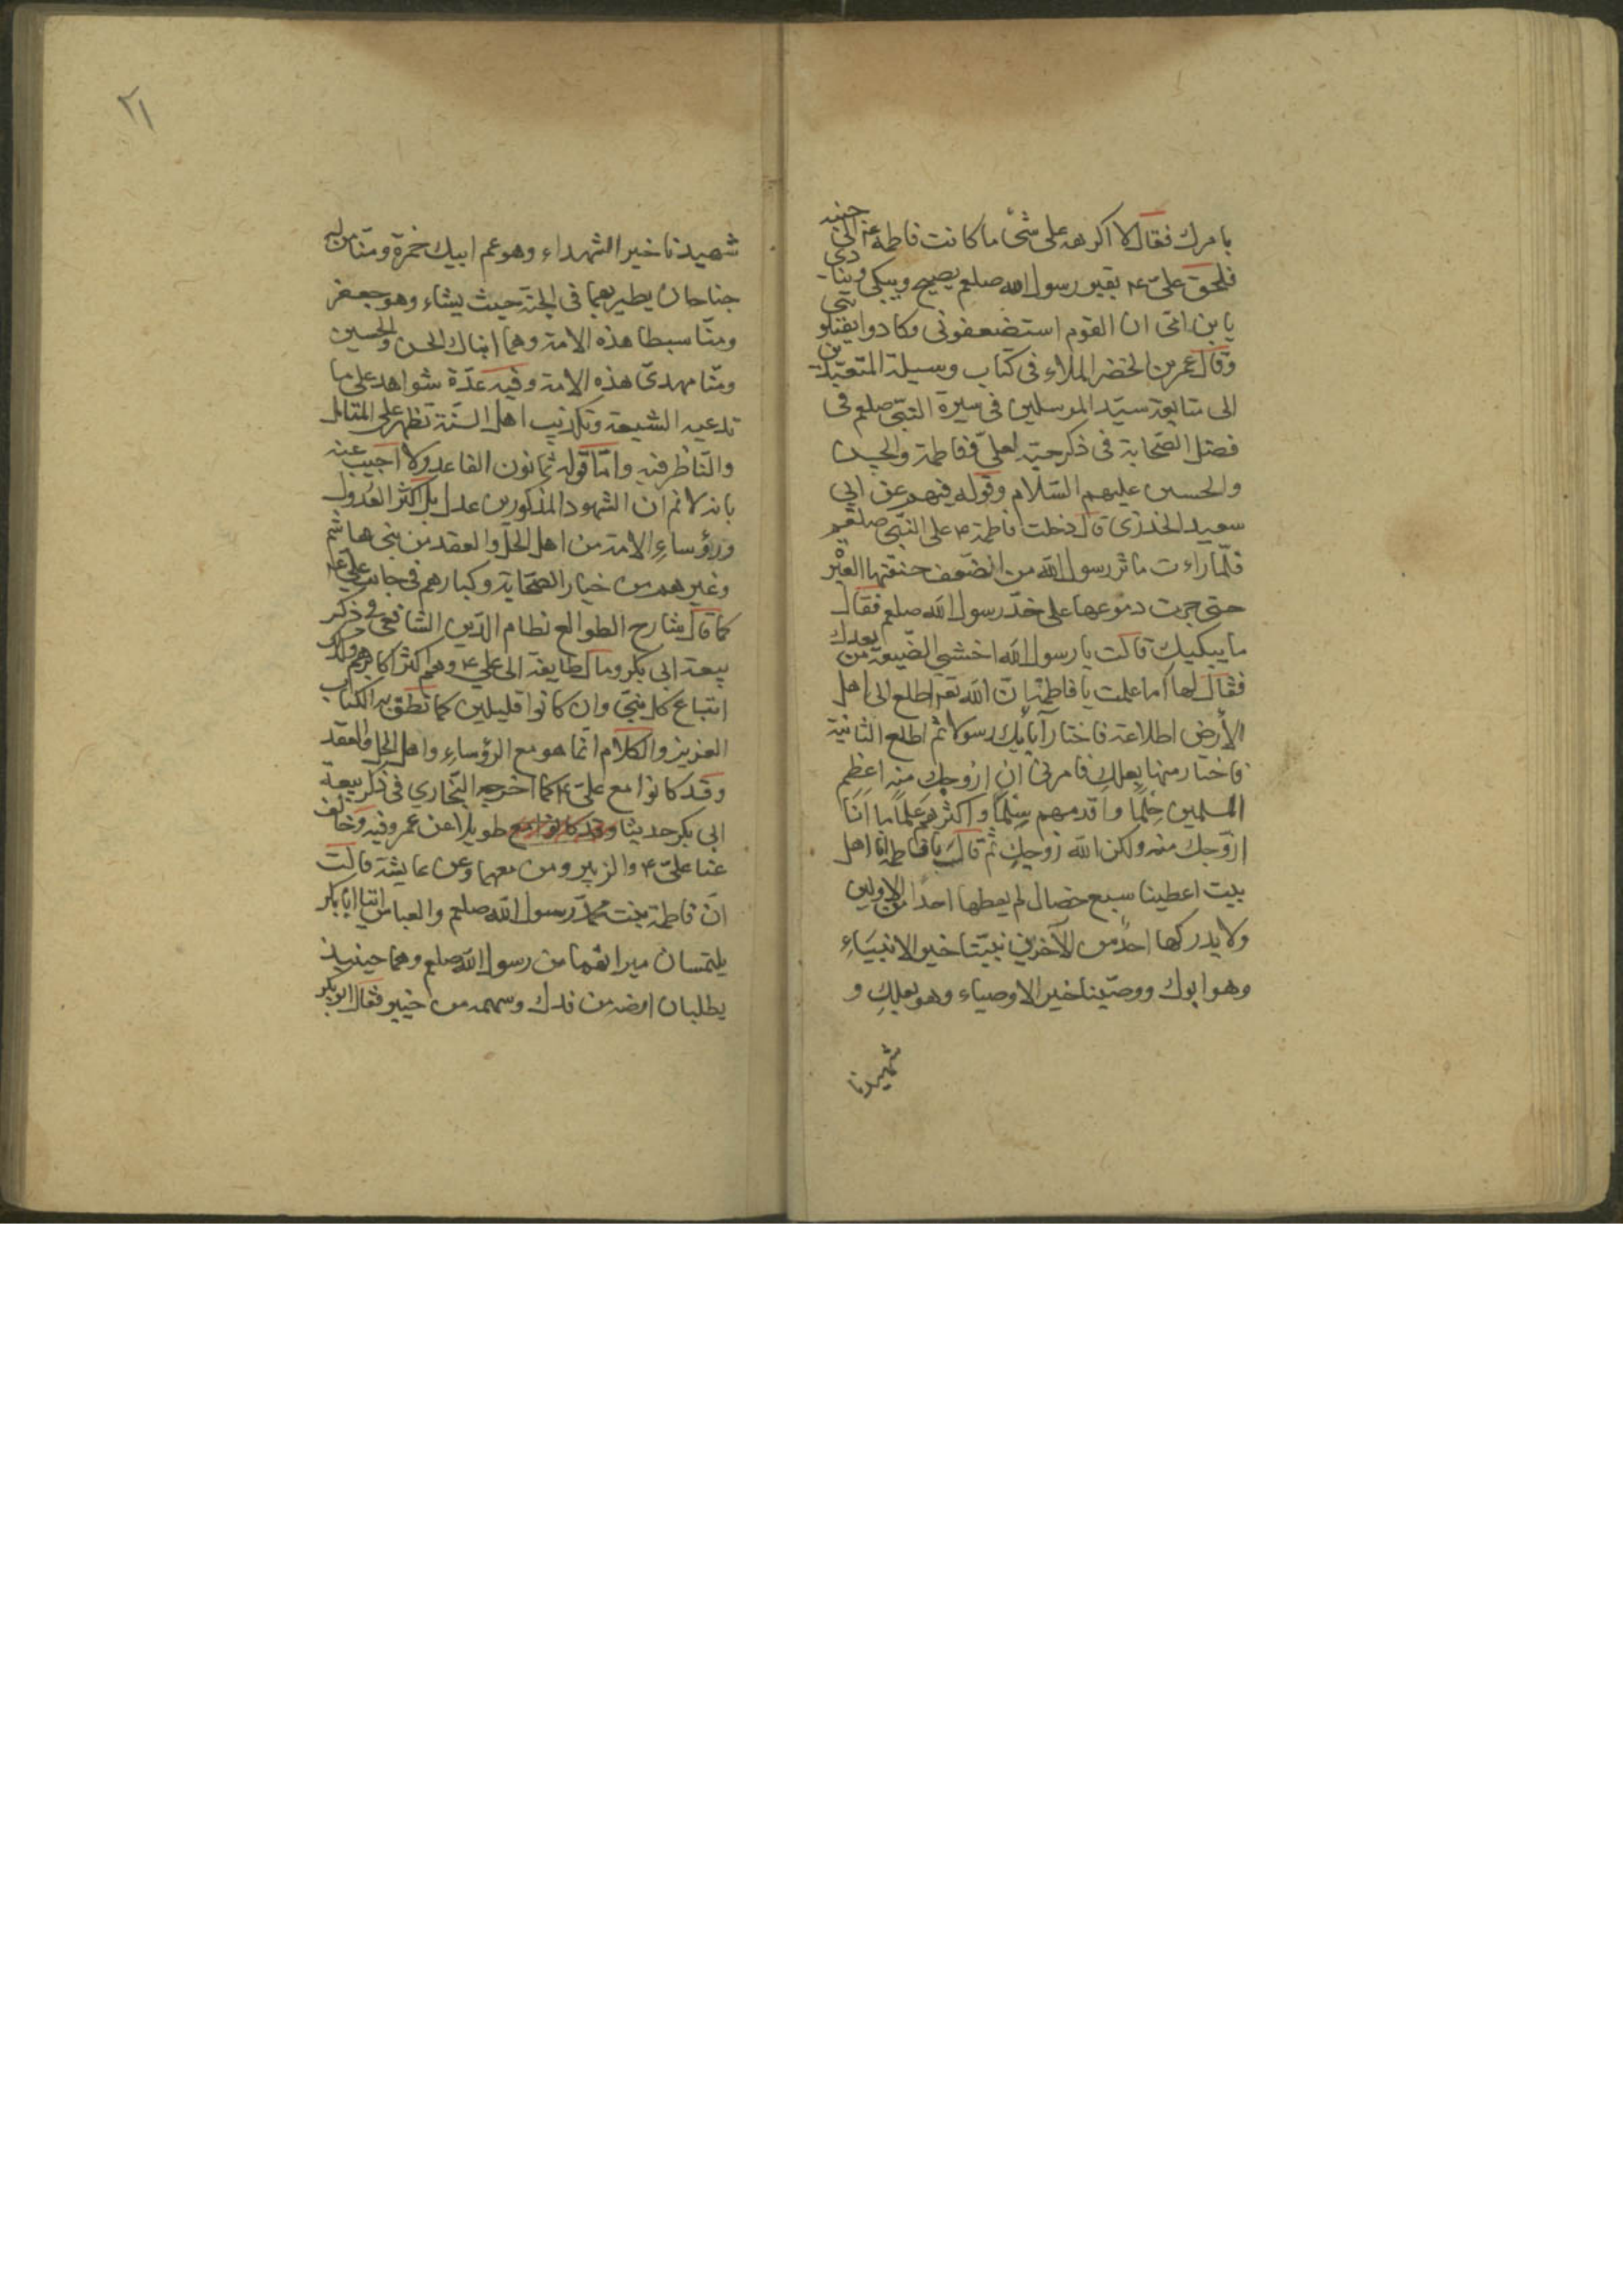 بامرك فقال لا اكرهه على شئ ما كانت فاطمة ع الى جنبه
فلحق على ۴ بقبر رسول الله صلعم يصيح ويبكى وينادى
يا بن امّى ان القوم استضعفونى وكادوا يقتلوننى
وقال عمر بن الخضر الملاء فى كتاب وسيلة المتعبّدين
الى متابعة سيّد المرسلين فى سيرة النبّى صلعم فى
فضل الصّحابة فى ذكر حبّه لعلىّ وفاطمة والحسن
والحسين عليهم السّلام وقوله فيهم عن ابى
سعيد الخدرى قال دخلت فاطمة ۴ على النبّى صلعم
فلمّا راءت ما بر رسول الله من الضّعف خنقتها العبْر
حتى جرت دموعها على خدّ رسول الله صلعم فقال
ما يبكيك قالت يا رسول الله اخشى الضّيعة من بعدك
فقال لها اما علمت يا فاطمة انّ الله تع اطلع الى اهل
الأرض اطلاعة فاختار آباءك رسولا ثم اطلع الثانية
فاختار منها بعلكِ فامرنى ان ازوجكِ منه اعظم
المسلمين حِلمًا واقدمهم سِلمًا واكثرهم علمًا ما انا
ازوّجك منه ولكن الله زوجكِ ثم قال يا فاطمة انا اهل
بيت اعطينا سبع خصال لم يعطها احدًا من الاولين
ولا يدركها احدٌ من الآخرين نبيّنا خير الانبيَاءِ
وهو ابوك ووصّينا خير الاوصياء وهو بعلكِ و
شهيدنا
۲۱
شهيدنا خير الشهداء وهو عم ابيك حمزة ومنّا من له
جناحان يطير بهما فى الجنة حيث يشاء وهو جعفر
ومنّا سبطا هذه الامة وهما ابناك الحسن والحسين
ومنّا مهدىّ هذه الامة وفيه عدّة شواهد على ما
تدعيه الشيعة وتكذيب اهل السنّة تظهر على المتامل
والنّاظر فيه وامّا قوله ثمانون القاعد ولا اجيب عنه
بانه لا نم ان الشهود المذكورين عدل بل اكثر العُدول
ورؤساءِ الامة من اهل الحلّ والعقد من بنى هاشم
وغيرهم من خيار الصّحابة وكبارهم فى جانب على ع
كما قال شارح الطوالع نظام الدّين الشافعى فى ذكر
بيعة ابى بكر ومال طايفة الى على ۴ وهم اكثر اكابرهم وكذلك
اتباع كل نبىّ وان كانوا قليلين كما نطق به الكتاب
العزيز والكلام انّما هو مع الرؤساءِ واهل الحل والعقد
وقد كانوا مع علىّ ۴ كما اخرجه البّخارى فى ذكر بيعة
ابى بكر حديثا وقد كانوا مع طويلا عن عمر وفيه وخالف
عنا علىّ ۴ والزبير ومن معهما وعن عايشة قالت
انّ فاطمة بنت محمّد رسول الله صلعم والعباس اتيا ابابكر
يلتمسان ميراثهما من رسول الله صلعم وهما حينيذ
يطلبان ارضه من فدك وسهمه من خيبر فقال ابوبكر